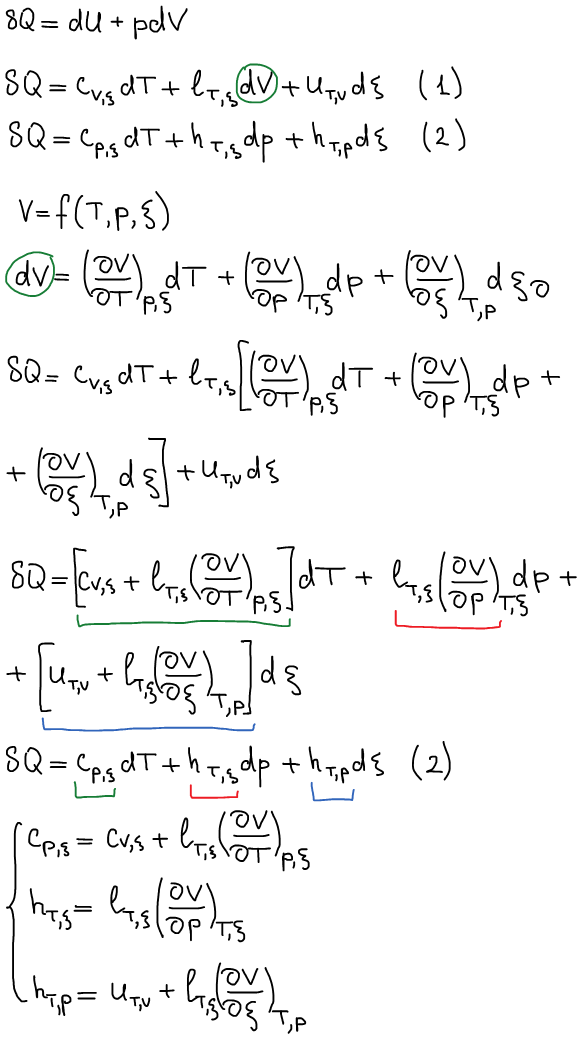 δQ = dU + pdV
δQ = C_{V,ξ} dT + l_{T,ξ} dV + u_{T,V} dξ (1)
δQ = C_{P,ξ} dT + h_{T,ξ} dp + h_{T,P} dξ (2)
V = f(T, P, ξ)
dV = (∂V/∂T)_{P,ξ} dT + (∂V/∂P)_{T,ξ} dp + (∂V/∂ξ)_{T,P} dξ
δQ = C_{V,ξ} dT + l_{T,ξ} [(∂V/∂T)_{P,ξ} dT + (∂V/∂P)_{T,ξ} dp +
+ (∂V/∂ξ)_{T,P} dξ] + u_{T,V} dξ
δQ = [C_{V,ξ} + l_{T,ξ} (∂V/∂T)_{P,ξ}] dT + l_{T,ξ} (∂V/∂P)_{T,ξ} dp +
+ [u_{T,V} + l_{T,ξ} (∂V/∂ξ)_{T,P}] dξ
δQ = C_{P,ξ} dT + h_{T,ξ} dp + h_{T,P} dξ (2)
C_{P,ξ} = C_{V,ξ} + l_{T,ξ} (∂V/∂T)_{P,ξ}
h_{T,ξ} = l_{T,ξ} (∂V/∂P)_{T,ξ}
h_{T,P} = u_{T,V} + l_{T,ξ} (∂V/∂ξ)_{T,P}